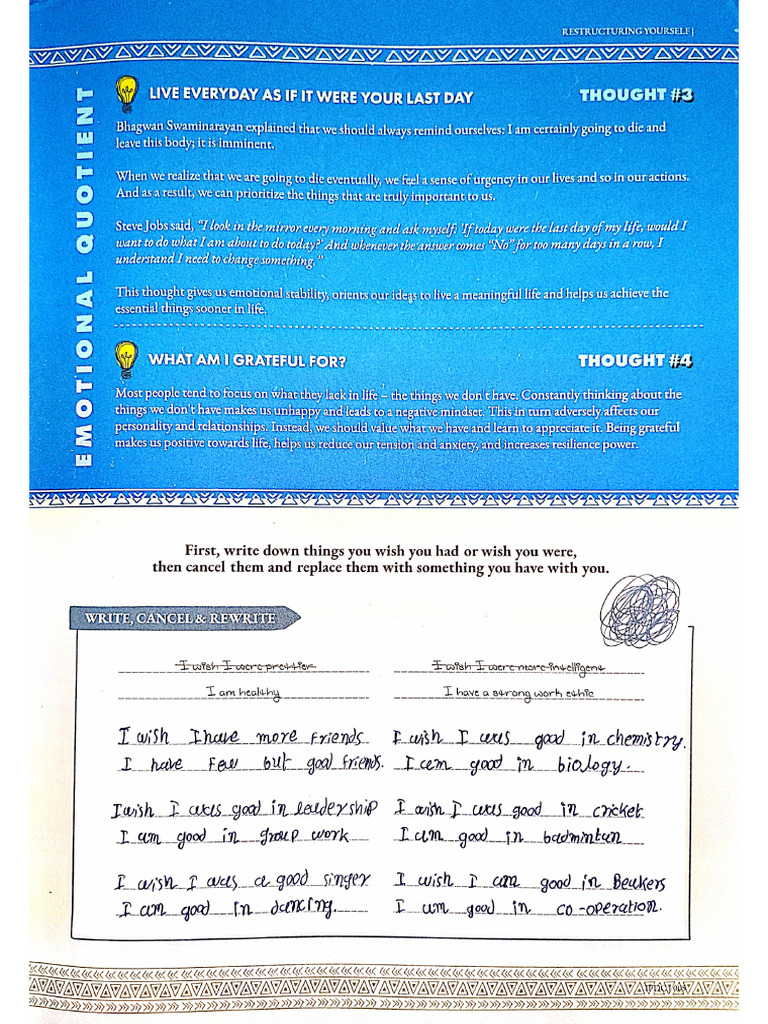 RESTRUCTURING YOURSELF |
EMOTIONAL QUOTIENT
LIVE EVERYDAY AS IF IT WERE YOUR LAST DAY
THOUGHT #3
Bhagwan Swaminarayan explained that we should always remind ourselves: I am certainly going to die and
leave this body; it is imminent.
When we realize that we are going to die eventually, we feel a sense of urgency in our lives and so in our actions.
And as a result, we can prioritize the things that are truly important to us.
Steve Jobs said, “I look in the mirror every morning and ask myself: 'If today were the last day of my life, would I
want to do what I am about to do today?' And whenever the answer comes “No” for too many days in a row, I
understand I need to change something.”
This thought gives us emotional stability, orients our ideas to live a meaningful life and helps us achieve the
essential things sooner in life.
WHAT AM I GRATEFUL FOR?
THOUGHT #4
Most people tend to focus on what they lack in life – the things we don't have. Constantly thinking about the
things we don't have makes us unhappy and leads to a negative mindset. This in turn adversely affects our
personality and relationships. Instead, we should value what we have and learn to appreciate it. Being grateful
makes us positive towards life, helps us reduce our tension and anxiety, and increases resilience power.
First, write down things you wish you had or wish you were,
then cancel them and replace them with something you have with you.
WRITE, CANCEL & REWRITE
I wish I were prettier
I am healthy
I wish I were more intelligent
I have a strong work ethic
I wish I have more friends
I have few but good friends.
I wish I was good in chemistry.
I am good in biology.
I wish I was good in leadership
I am good in group work
I wish I was good in cricket
I am good in badminton
I wish I was a good singer
I am good in dancing.
I wish I am good in
I am good in co-operation.